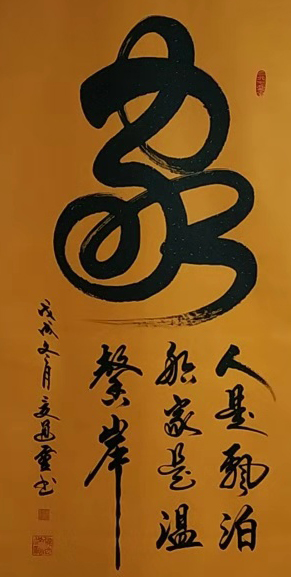 家
人是飄泊
船家是温
馨岸
戊戌冬月